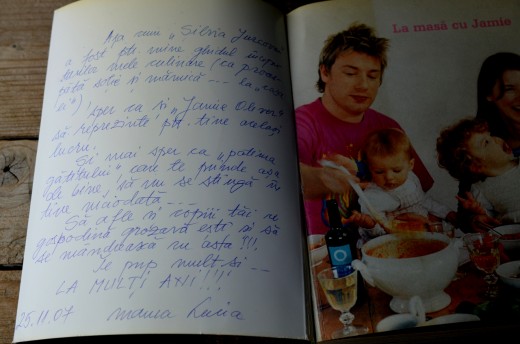 Așa cum „Silvia Jurcovan”
a fost ptr. mine ghidul începu-
turilor mele culinare (ca proas-
pătă soție și mămică --- la
sper ca și „Jamie Oliver”
să reprezinte ptr. tine același
lucru.
Și mai sper ca „patima
gătitului” care te prinde așa
de bine, să nu se stingă în
tine niciodată ---
Să afle și copiii tăi ce
gospodină grozavă ești și să
se mândrească cu asta !!!
Te pup mult și --
LA MULȚI ANI!!!!
25.11.07 mama Lucia
La masă cu Jamie